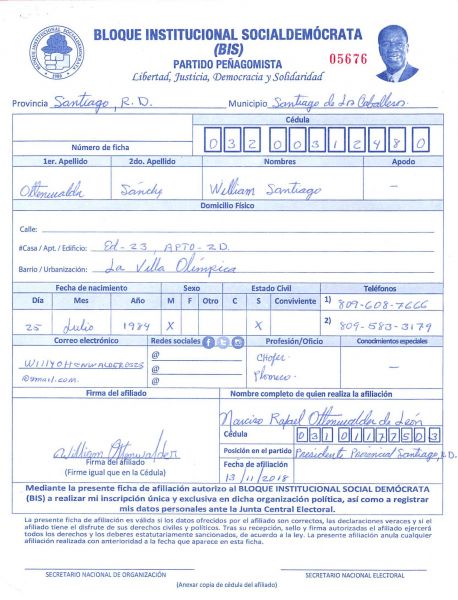 BLOQUE INSTITUCIONAL SOCIALDEMÓCRATA
(BIS)
PARTIDO PEÑAGOMISTA
05676
Libertad, Justicia, Democracia y Solidaridad
Provincia Santiago, R.D. Municipio Santiago de Los Caballeros
Cédula
Número de ficha 03200312480
1er. Apellido 2do. Apellido Nombres Apodo
Ottenwalder Sánchez William Santiago —
Domicilio Físico
Calle:
#Casa / Apt. / Edificio: Ed-23, APTO-2D.
Barrio / Urbanización: La Villa Olímpica
Fecha de nacimiento Sexo Estado Civil Teléfonos
Día Mes Año M F Otro C S Conviviente 1) 809-608-7666
25 Julio 1984 X X 2) 809-583-3179
Correo electrónico Redes sociales Profesión/Oficio Conocimientos especiales
@
@
@
@gmail.com.
Chofer
—
Firma del afiliado Nombre completo de quien realiza la afiliación
Narciso Rafael Ottenwalder de León
Cédula 03101177503
William Ottenwalder
Posición en el partido Presidente Provincial Santiago, R.D.
Firma del afiliado
(Firme igual que en la Cédula)
Fecha de afiliación
13/11/2018
Mediante la presente ficha de afiliación autorizo al BLOQUE INSTITUCIONAL SOCIAL DEMÓCRATA
(BIS) a realizar mi inscripción única y exclusiva en dicha organización política, así como a registrar
mis datos personales ante la Junta Central Electoral.
La presente ficha de afiliación es válida si los datos ofrecidos por el afiliado son correctos, las declaraciones veraces y si el
afiliado tiene el disfrute de sus derechos civiles y políticos. Tras su recepción, sello y firma autorizadas el afiliado ejercerá
todos los derechos y los deberes estatutariamente sancionados, de acuerdo a la ley. La presente afiliación anula cualquier
afiliación realizada con anterioridad a la fecha que aparece en esta ficha.
SECRETARIO NACIONAL DE ORGANIZACIÓN SECRETARIO NACIONAL ELECTORAL
(Anexar copia de cédula del afiliado)